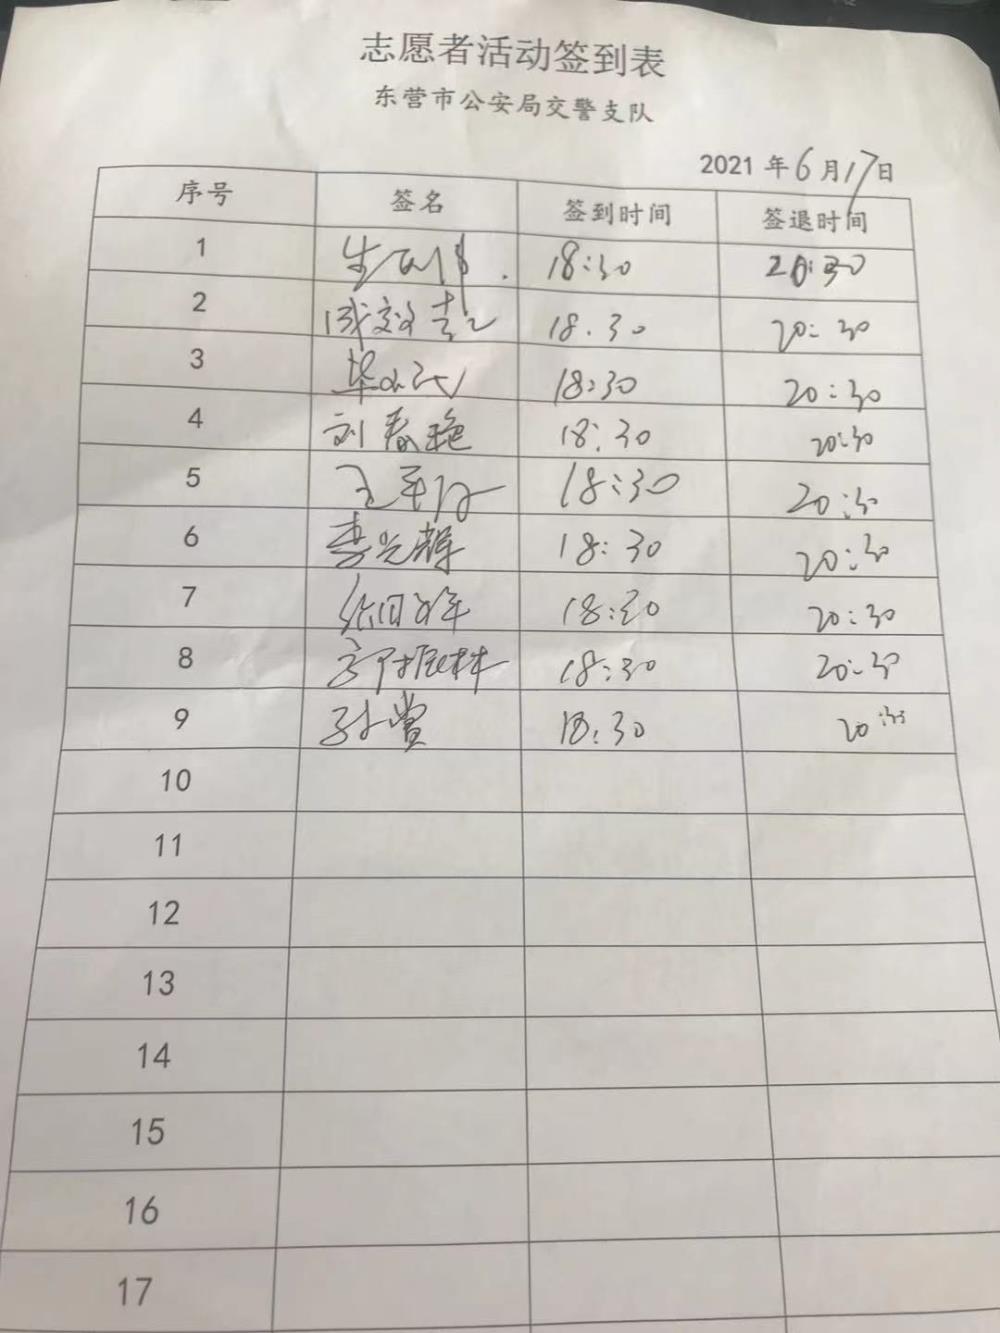 志愿者活动签到表
东营市公安局交警支队
2021年6月17日
序号 签名 签到时间 签退时间
1 18:30 20:30
2 18.30 20:30
3 18:30 20:30
4 刘春艳 18:30 20:30
5 18:30 20:30
6 李光辉 18:30 20:30
7 18:30 20:30
8 18:30 20:30
9 18:30 20:30
10
11
12
13
14
15
16
17